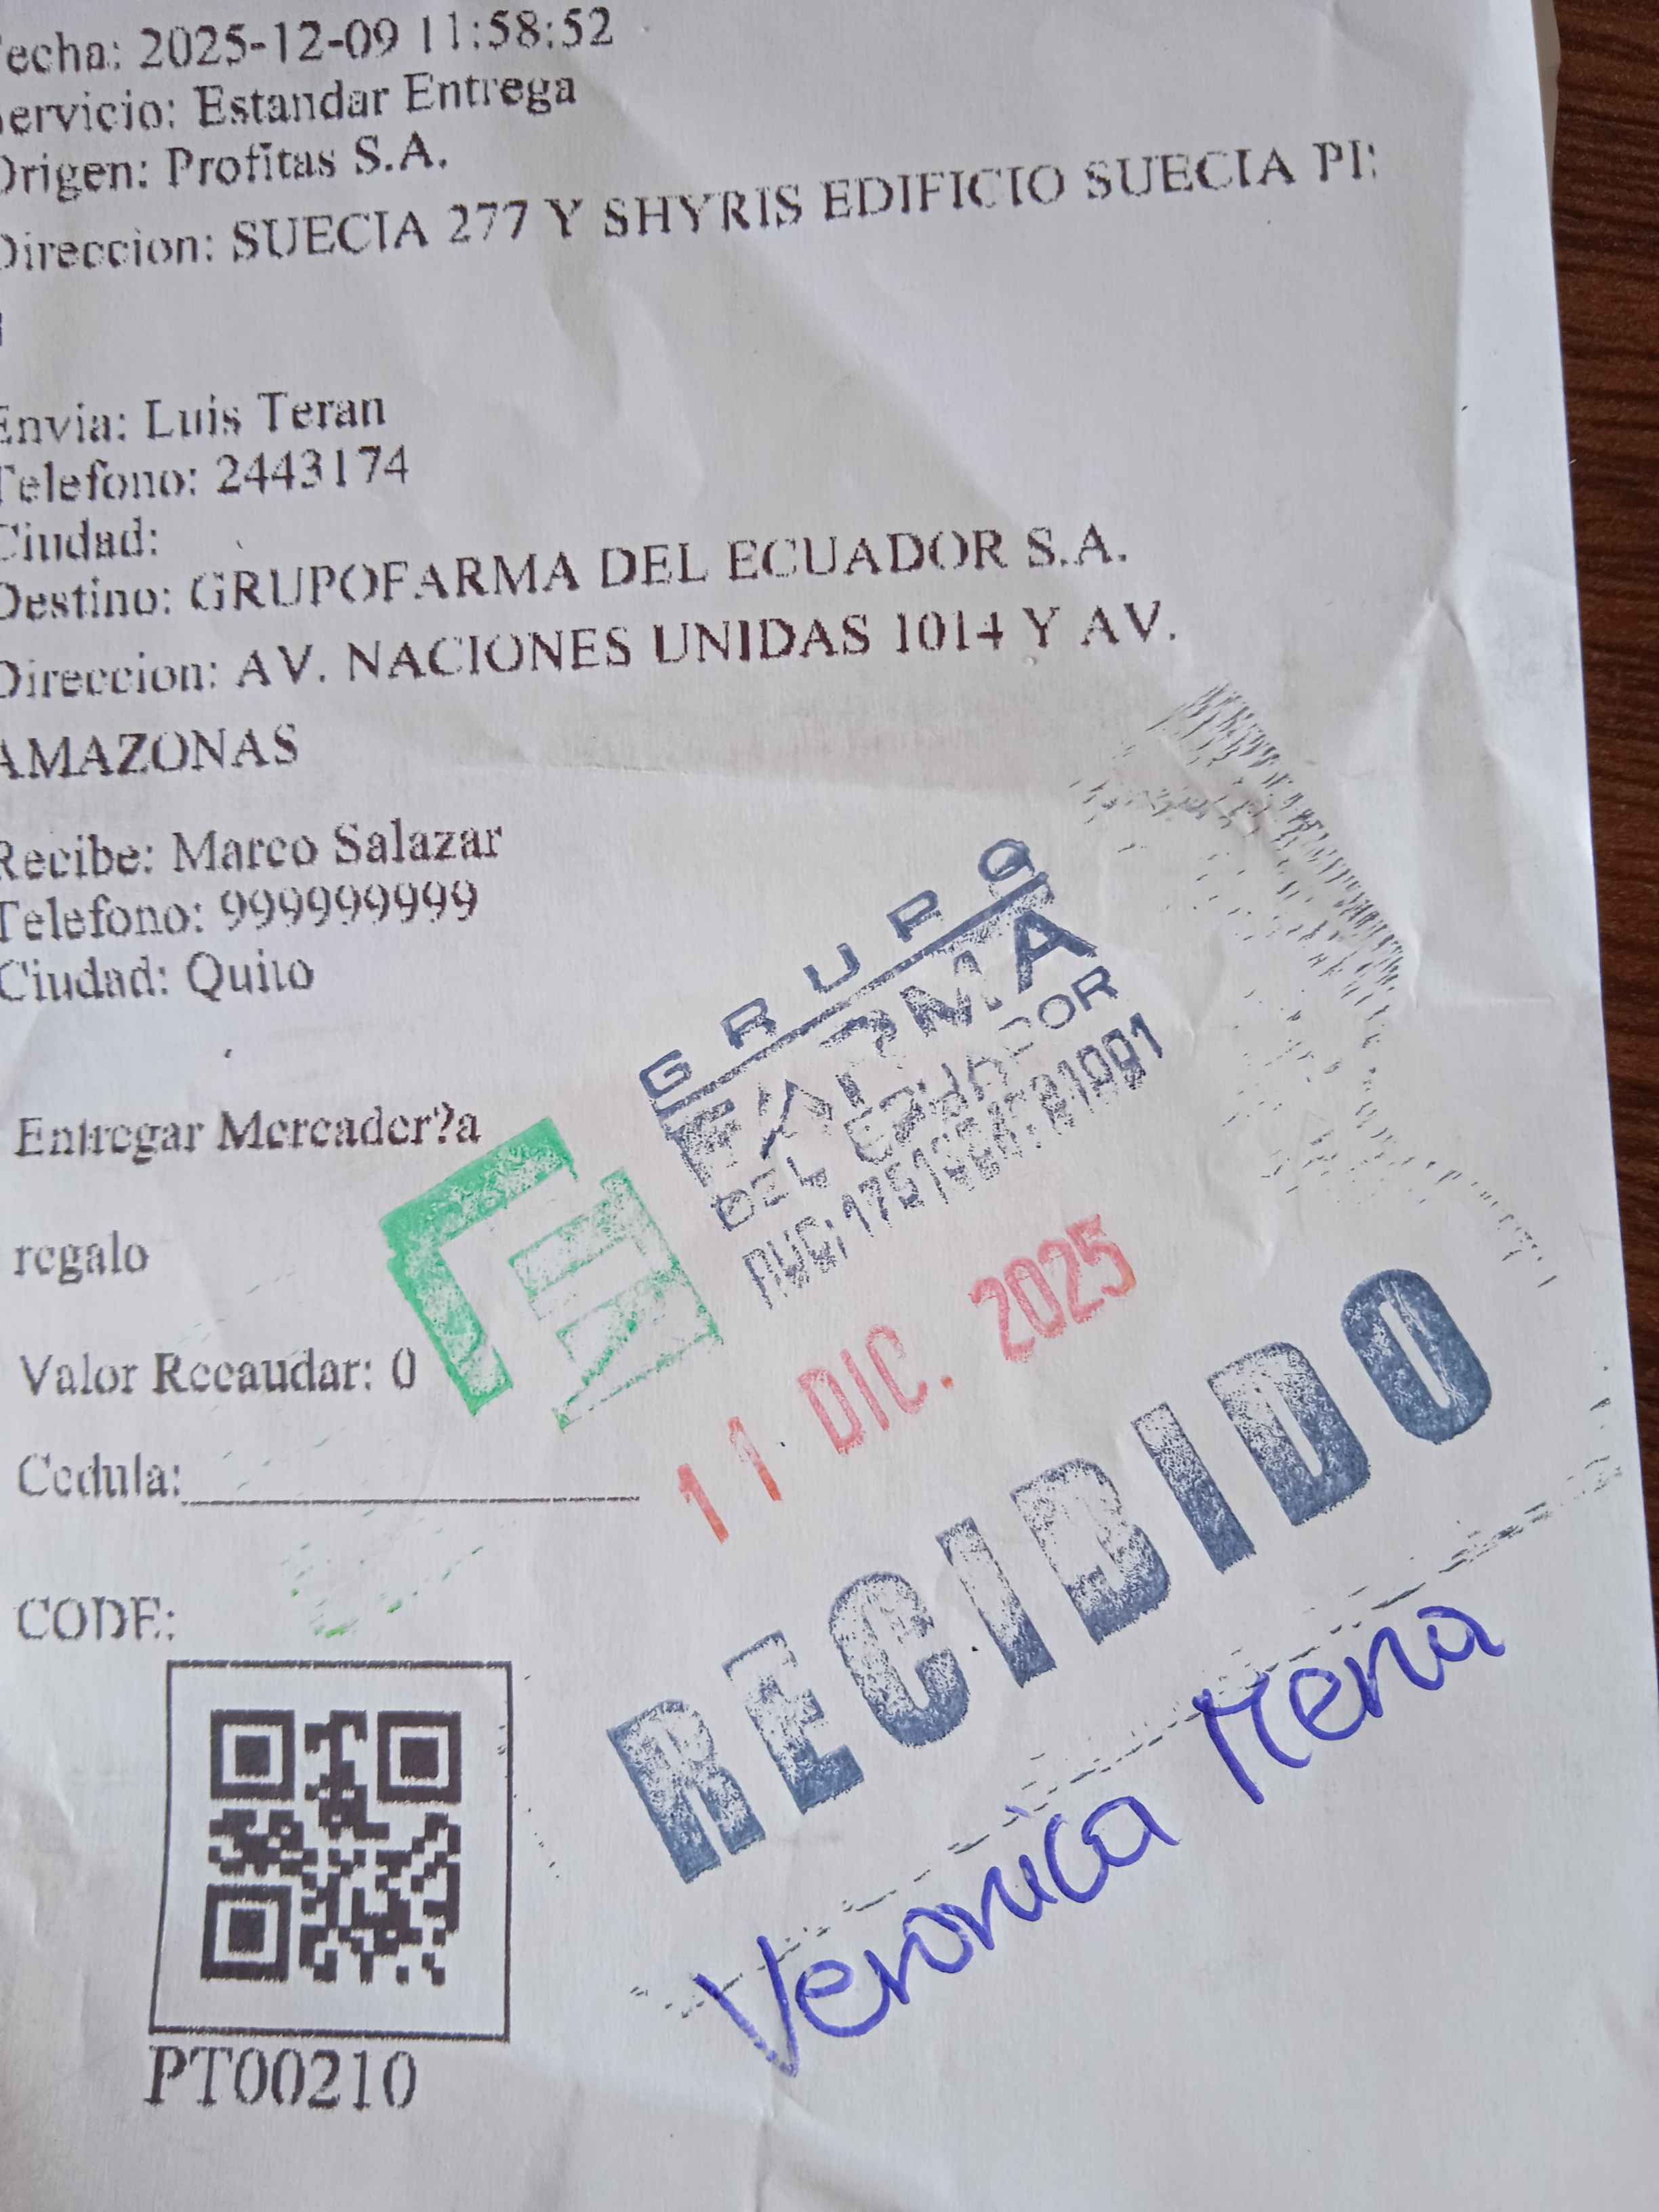 echa: 2025-12-09 11:58:52
ervicio: Estandar Entrega
Origen: Profitas S.A.
Direccion: SUECIA 277 Y SHYRIS EDIFICIO SUECIA PI:
Envia: Luis Teran
Telefono: 2443174
Ciudad:
Destino: GRUPOFARMA DEL ECUADOR S.A.
Direccion: AV. NACIONES UNIDAS 1014 Y AV.
AMAZONAS
Recibe: Marco Salazar
Telefono: 999999999
Ciudad: Quito
GRUPO
FARMA
DEL ECUADOR
RUC:
Entregar Mercader?a
regalo
11 DIC. 2025
Valor Recaudar: 0
RECIBIDO
Cedula:
Veronica Mena
CODE:
PT00210